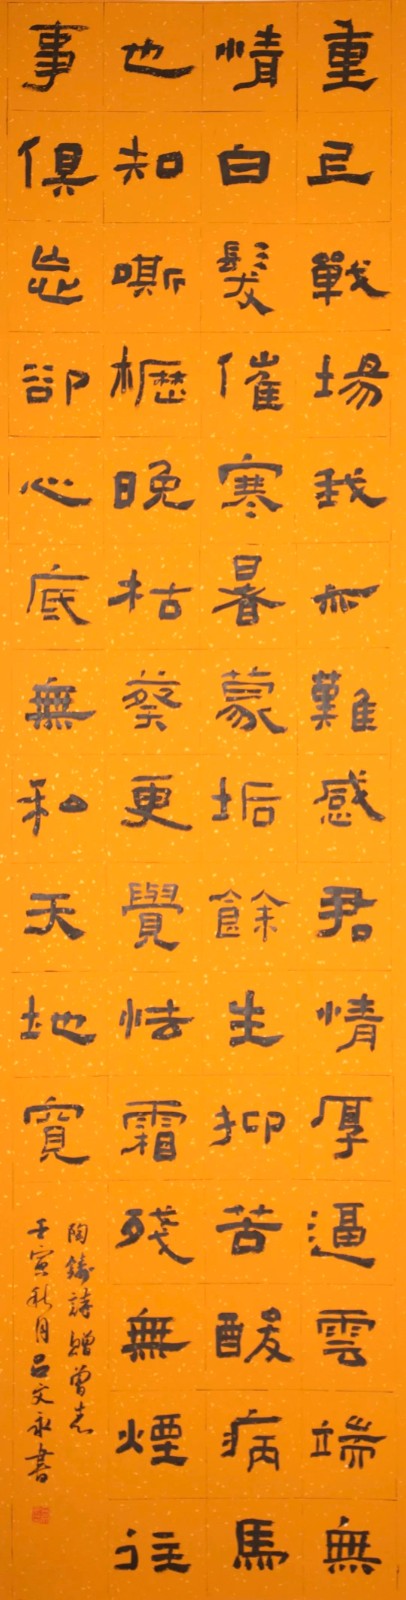 重上戰場我亦難感君情厚逼雲端無
情白髮催寒暑蒙垢餘生抑苦酸病馬
也知嘶櫪晚枯葵更覺怯霜殘無煙往
事俱忘卻心底無私天地寬
陶鑄詩贈曾志
壬寅秋月呂文永書